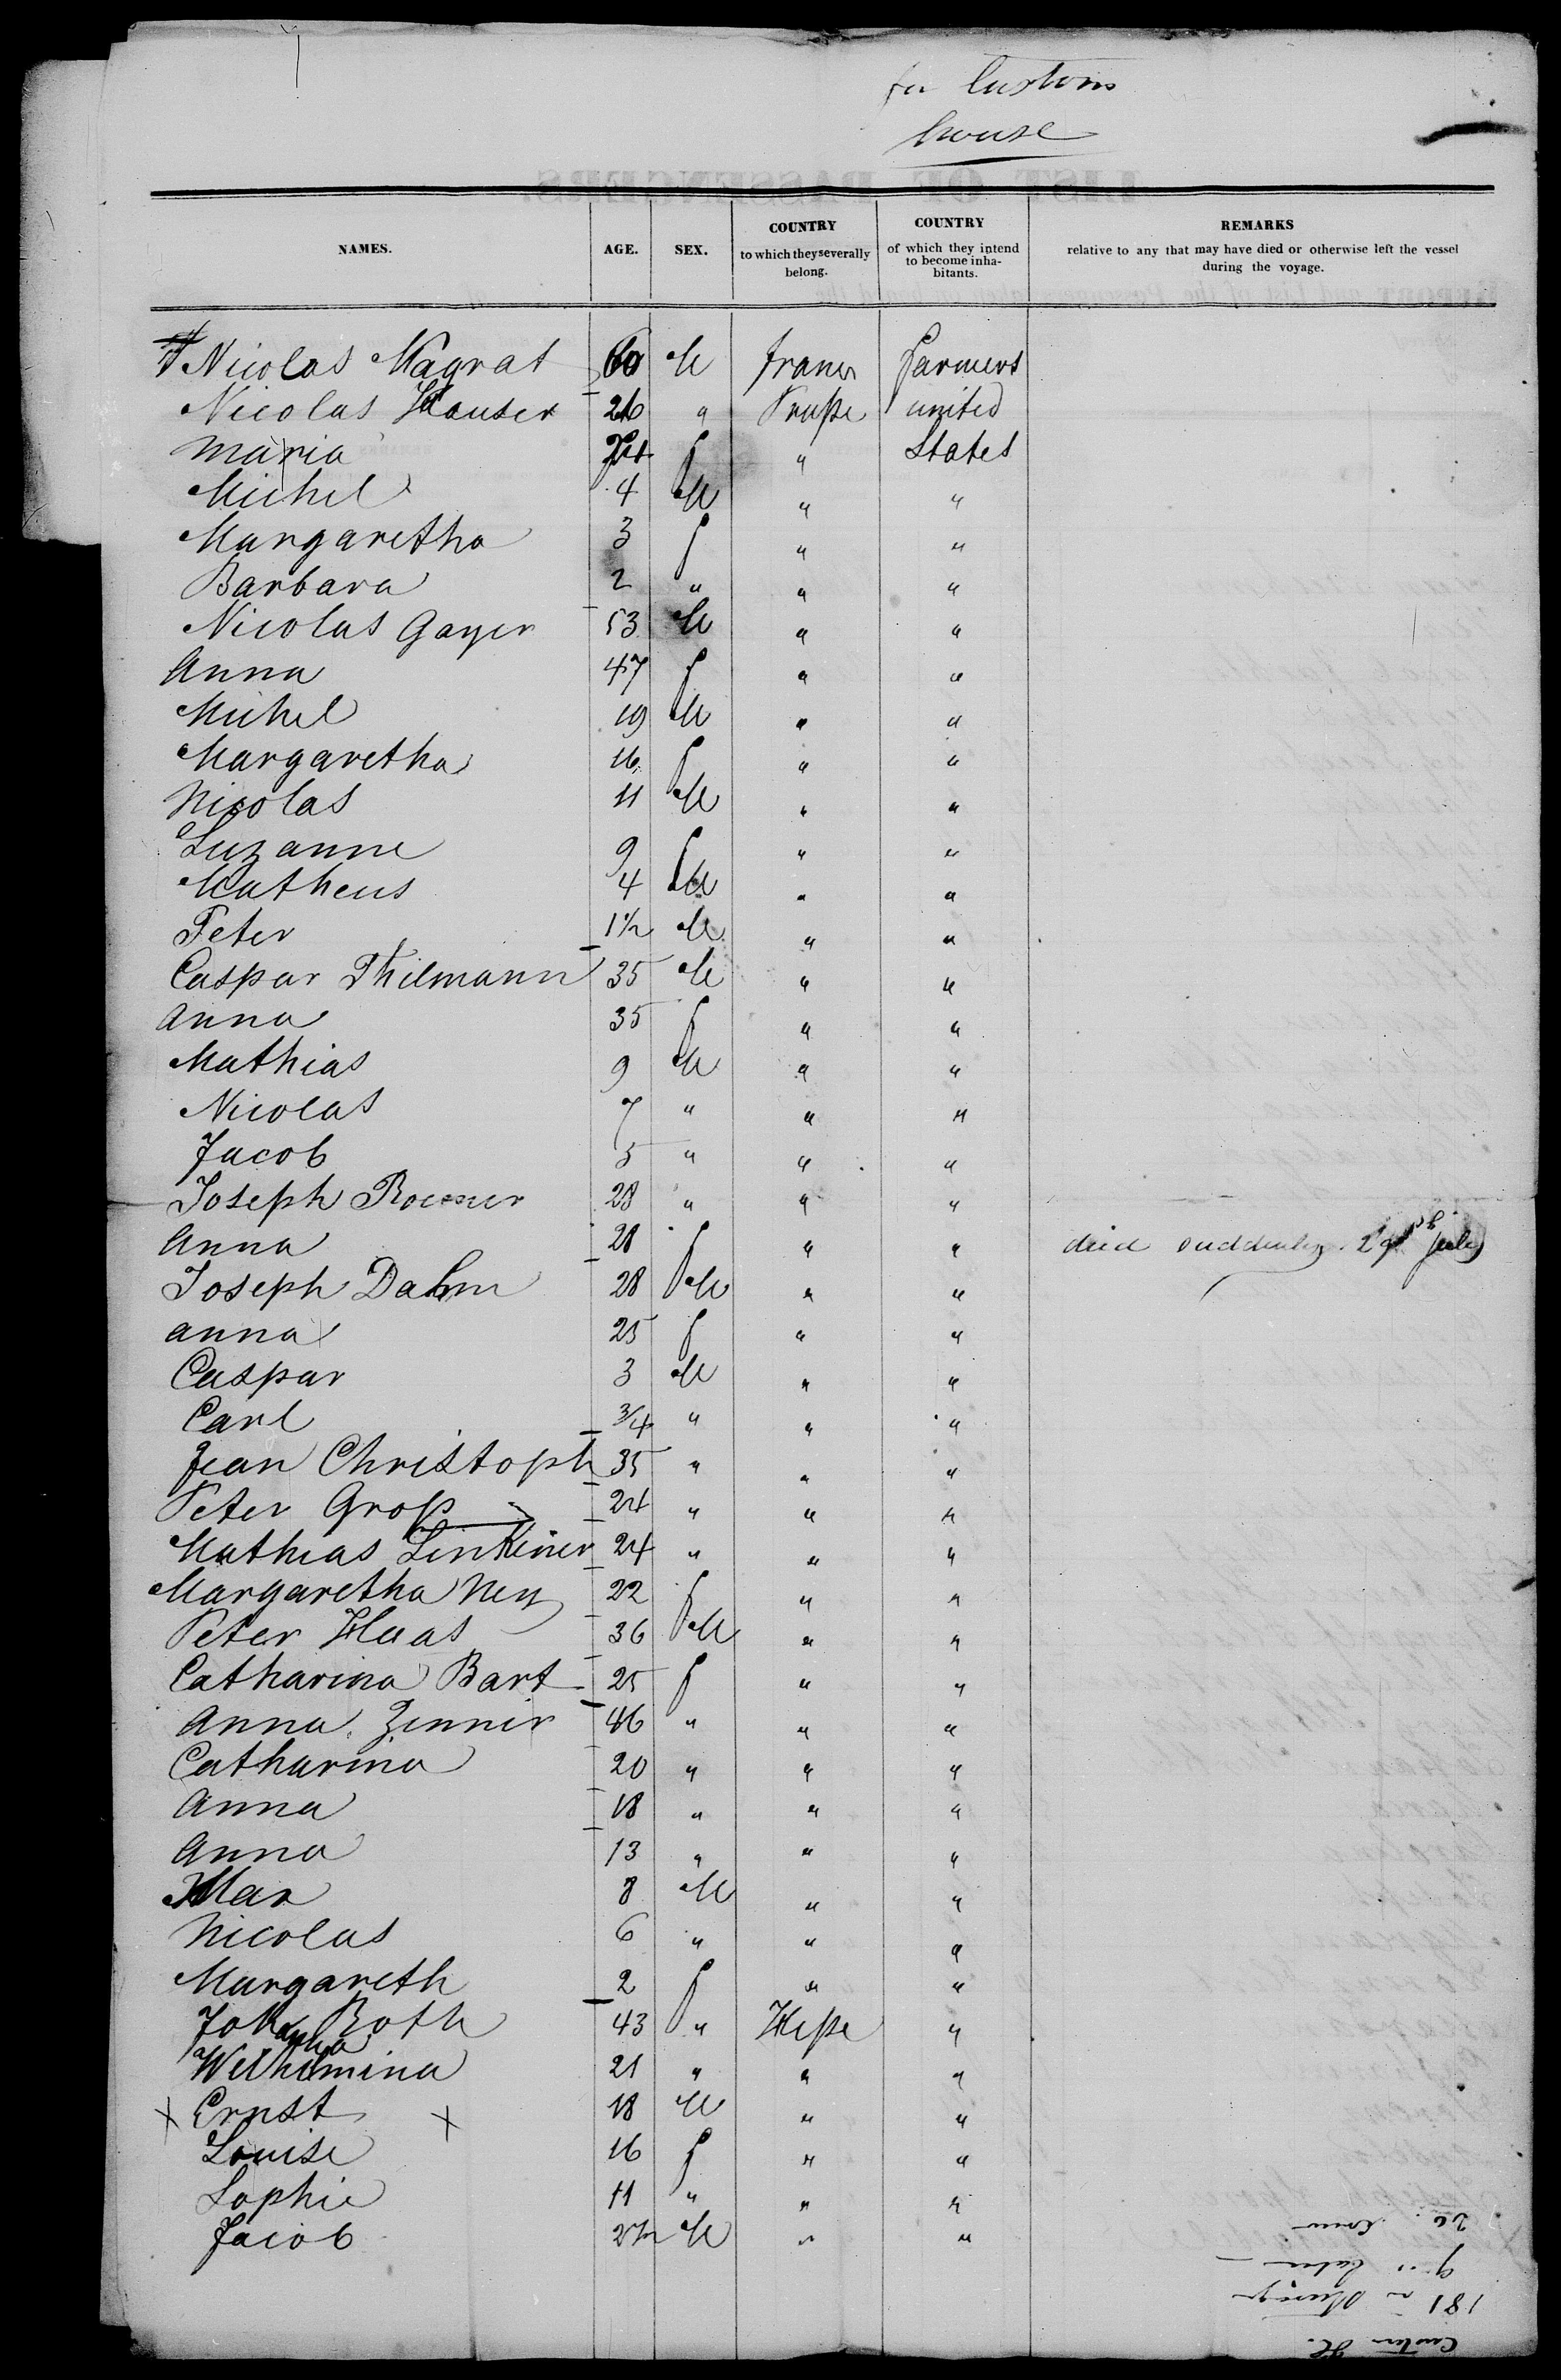 for Customs
house
LIST OF PASSENGERS.
NAMES. AGE. SEX. COUNTRY to which they severally belong. COUNTRY of which they intend to become inha-bitants. REMARKS relative to any that may have died or otherwise left the vessel during the voyage.
Nicolas Magrat 60 M france Farmers
Nicolas Hauser 26 " Prußе united
Maria f " States
Michel 4 M " "
Margaretha 3 f " "
Barbara 2 " " "
Nicolas Gayer 53 M " "
Anna 47 f " "
Michel 19 M " "
Margaretha 16 f " "
Nicolas 11 M " "
Suzanne 9 f " "
Matheus 4 M " "
Peter 1½ M " "
Caspar Thilmann 35 M " "
Anna 35 f " "
Mathias 9 M " "
Nicolas 7 " " "
Jacob 5 " " "
Joseph 28 " " "
Anna 28 f " " died suddenly July
Joseph Dahm 28 M " "
Anna 25 f " "
Caspar 3 M " "
Carl ¾ " " "
Jean Christoph 35 " " "
Peter Groß 24 " " "
Mathias Linkiner 24 " " "
Margaretha Ney 22 f " "
Peter Haas 36 M " "
Catharina Bart 25 f " "
Anna Zinnir 46 " " "
Catharina 20 " " "
Anna 18 " " "
Anna 13 " " "
Max 8 M " "
Nicolas 6 " " "
Margareth 2 f " "
Johanna Roth 43 " Heße "
Wilhelmina 21 " " "
x Ernst x 18 M " "
Louise 16 f " "
Sophie 11 " " "
Jacob M " "
181